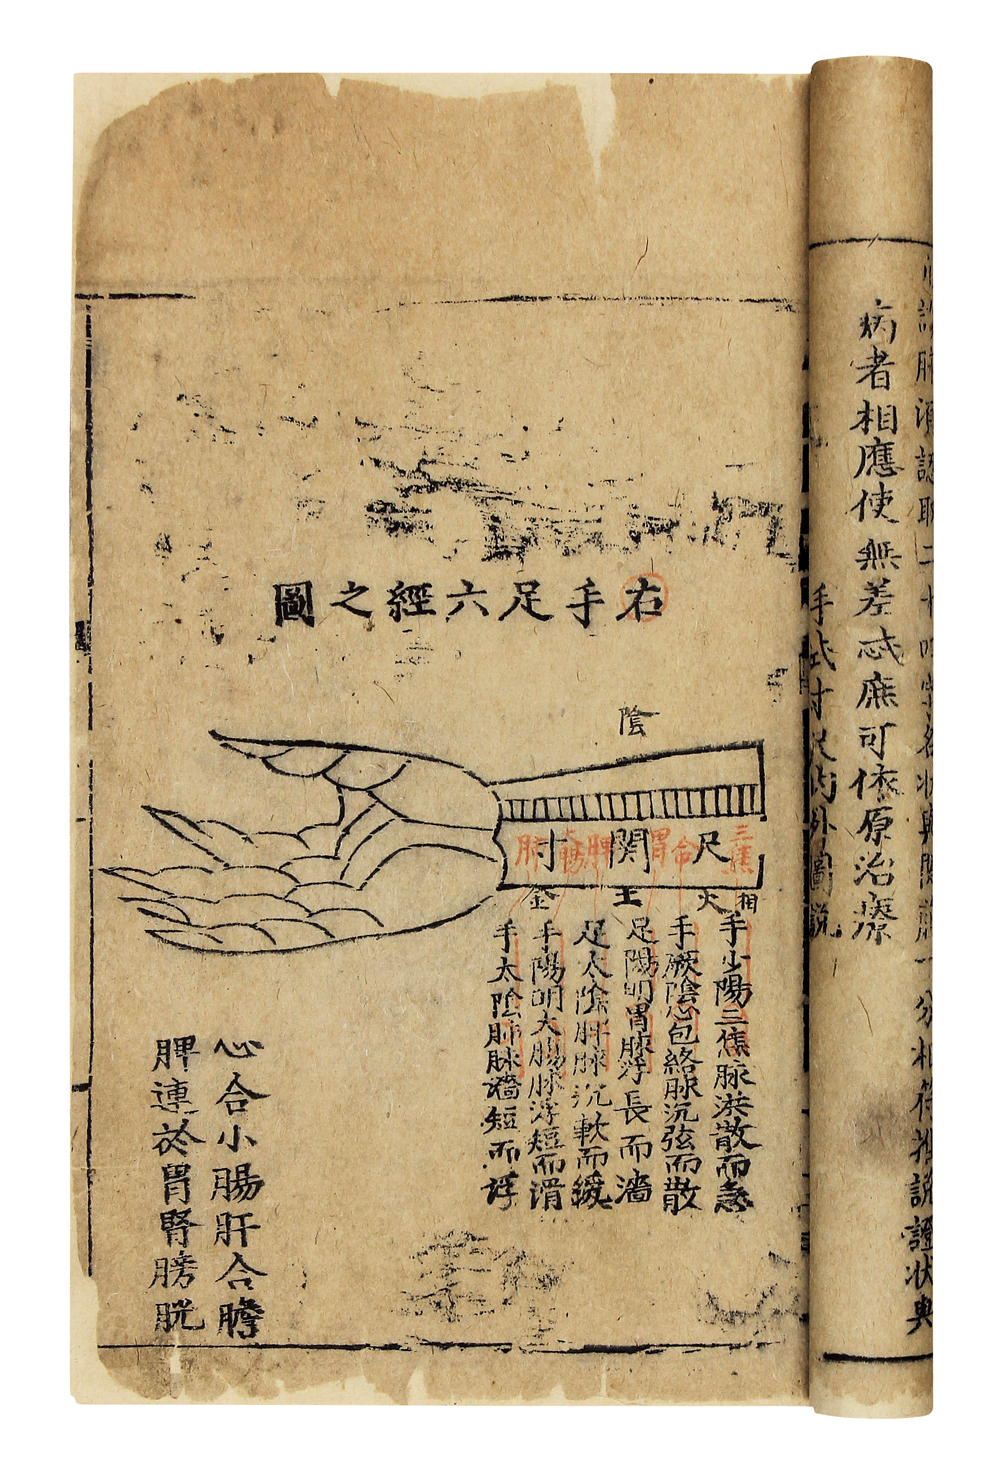 病者相應使無差忒庶可依原治療
手式寸尺內外圖說
右手足六經之圖
陰
尺 關 寸
三焦 命 胃 脾 大腸 肺
相火 土 金
手少陽三焦脉洪散而急
手厥陰心包絡脉沉弦而散
足陽明胃脉浮長而濇
足太陰脾脉沉軟而緩
手陽明大腸脉浮短而滑
手太陰肺脉濇短而浮
心合小腸肝合膽
脾連於胃腎膀胱